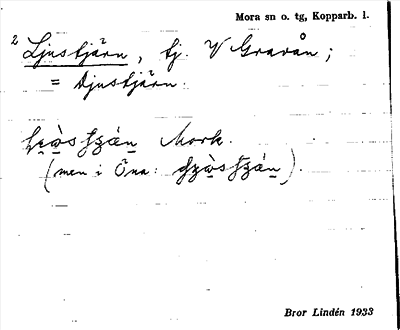 Mora sn o. tg, Kopparb. l.
2 Ljustjärn, tj. V Gravån;
= Djustjärn.
Mork.
(men i Öna:
Bror Lindén 1933